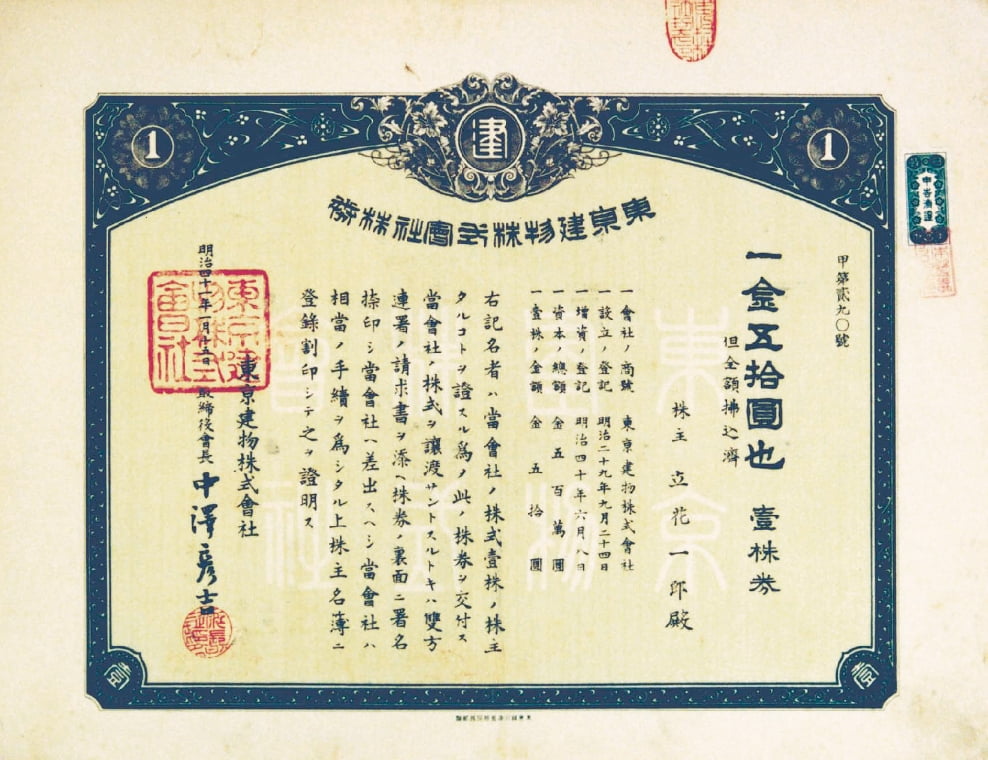 1
建
1
東京建物株式會社株券
甲第貳九〇號
一金五拾圓也 壹株券
但全額拂込濟
株主 立花一郎殿
一會社ノ商號 東京建物株式會社
一設立ノ登記 明治二十九年九月二十四日
一增資ノ登記 明治四十年六月八日
一資本ノ總額 金五百萬圓
一壹株ノ金額 金五拾圓
右記名者ハ當會社ノ株式壹株ノ株主
タルコトヲ證スル爲メ此ノ株券ヲ交付ス
當會社ノ株式ヲ讓渡サントスルトキハ雙方
連署ノ請求書ヲ添ヘ株券ノ裏面ニ署名
捺印シ當會社ヘ差出スヘシ當會社ハ
相當ノ手續ヲ爲シタル上株主名簿ニ
登錄割印シテ之ヲ證明ス
明治四十一年一月十五日
東京建物株式會社
取締役會長 中澤彦吉
東京建物株式會社
東京建物株式會社